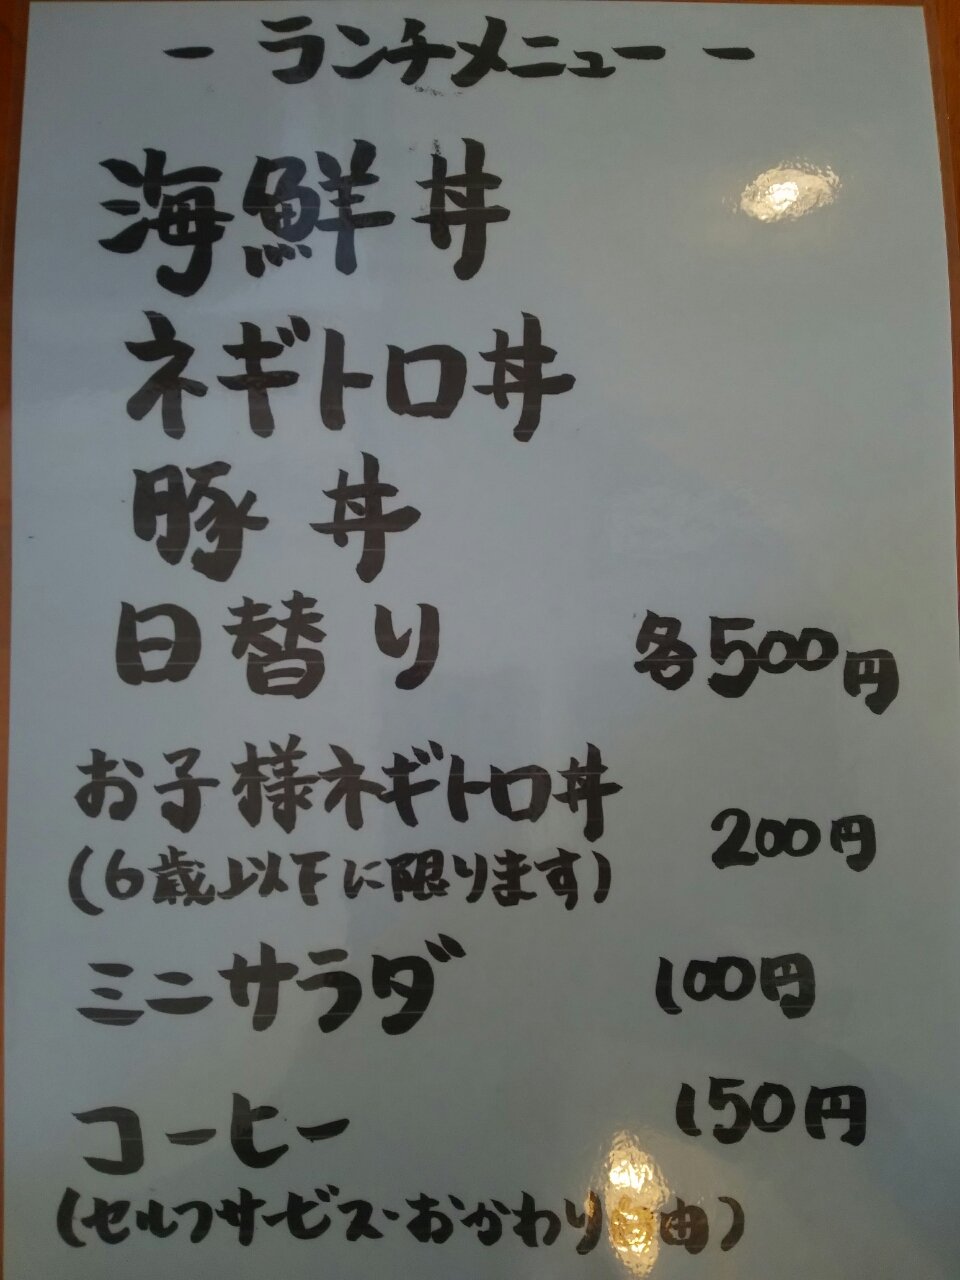 - ランチメニュー -
海鮮丼
ネギトロ丼
豚丼
日替り 各500円
お子様ネギトロ丼 200円
(6歳以下に限ります)
ミニサラダ 100円
コーヒー 150円
(セルフサービス・おかわり自由)